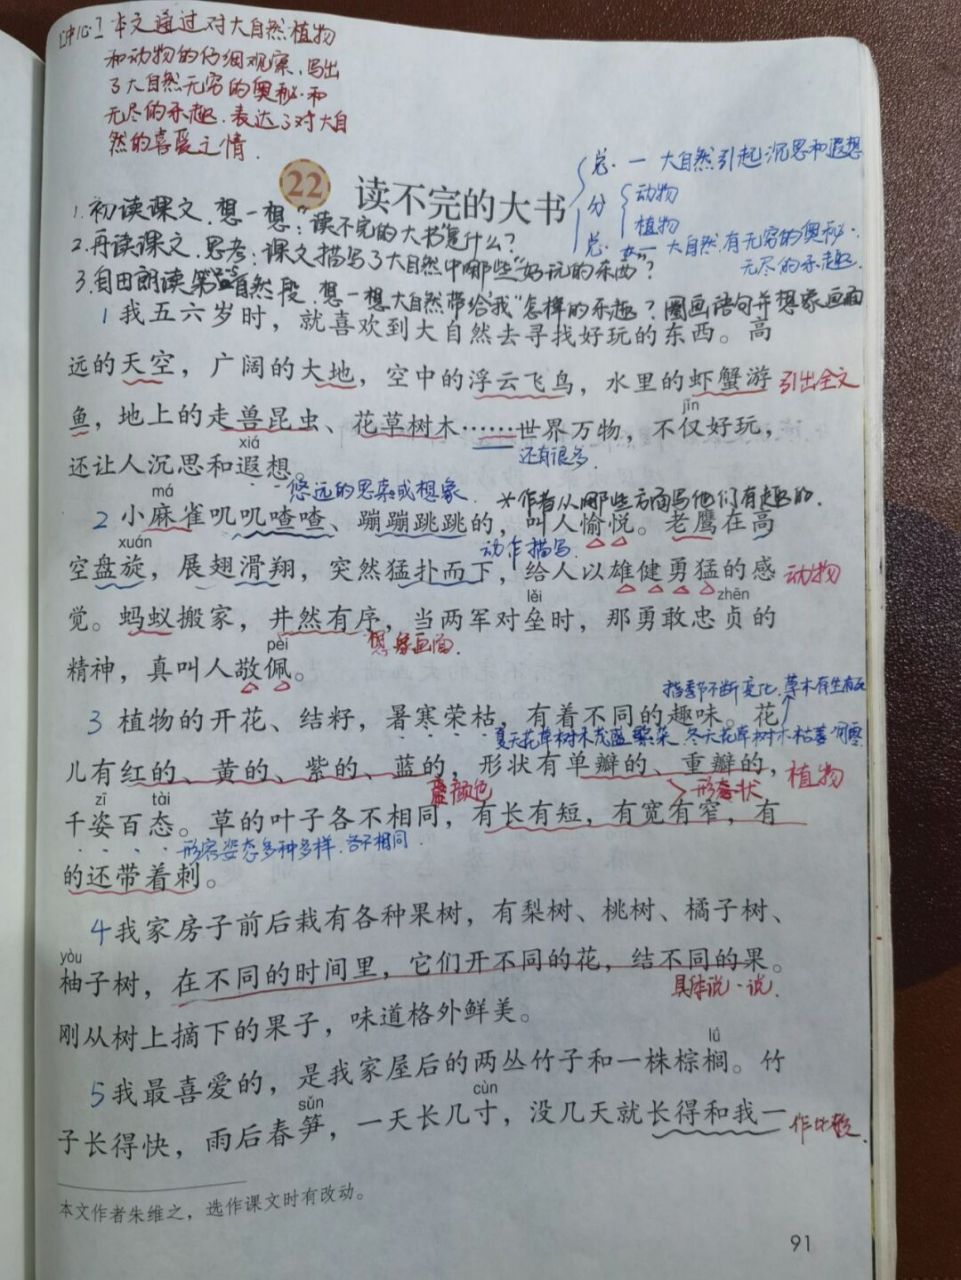 [中心] 本文通过对大自然植物
和动物的仔细观察，写出
了大自然无穷的奥秘和
无尽的乐趣，表达了对大自
然的喜爱之情．
22 读不完的大书
总·一 大自然引起沉思和遐想
分 动物
植物
总· 大自然有无穷的奥秘、
无尽的乐趣．
1.初读课文，想一想："读不完的大书"是什么？
2.再读课文，思考：课文描写了大自然中哪些"好玩的东西"？
3.自由朗读第 自然段，想一想大自然带给我"怎样的乐趣？圈画语句并想象画面
1 我五六岁时，就喜欢到大自然去寻找好玩的东西。高
远的天空，广阔的大地，空中的浮云飞鸟，水里的虾蟹游 引出全文
jǐn
鱼，地上的走兽昆虫、花草树木……世界万物，不仅好玩，
xiá
还有很多．
还让人沉思和遐想。
悠远的思索或想象．
*作者从哪些方面写他们有趣的．
má
2 小麻雀叽叽喳喳、蹦蹦跳跳的，叫人愉悦。老鹰在高
xuán
动作描写
空盘旋，展翅滑翔，突然猛扑而下，给人以雄健勇猛的感 动物
lěi zhēn
觉。蚂蚁搬家，井然有序，当两军对垒时，那勇敢忠贞的
pèi
想象画面．
精神，真叫人敬佩。
指季不断变化，草木有生有死
3 植物的开花、结籽，暑寒荣枯，有着不同的趣味。花
夏天花草树木茂盛繁杂 冬天花草树木枯萎凋零
儿有红的、黄的、紫的、蓝的，形状有单瓣的、重瓣的， 植物
颜色 形状
zī tài
千姿百态。草的叶子各不相同，有长有短，有宽有窄，有
形容姿态多种多样，各不相同．
的还带着刺。
4 我家房子前后栽有各种果树，有梨树、桃树、橘子树、
yòu
柚子树，在不同的时间里，它们开不同的花，结不同的果。
具体说一说．
刚从树上摘下的果子，味道格外鲜美。
lǘ
5 我最喜爱的，是我家屋后的两丛竹子和一株棕榈。竹
sǔn cùn
子长得快，雨后春笋，一天长几寸，没几天就长得和我一 作比较．
本文作者朱维之，选作课文时有改动。
91